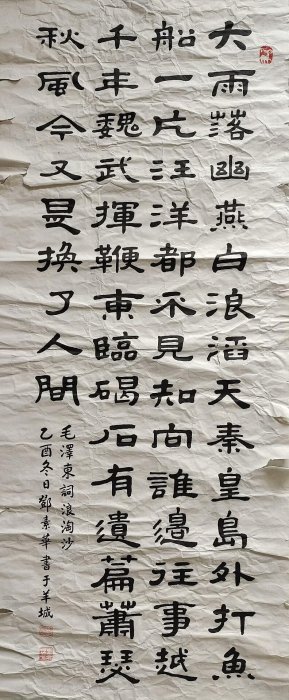 大雨落幽燕白浪滔天秦皇島外打魚
船一片汪洋都不見知向誰邊往事越
千年魏武揮鞭東臨碣石有遺篇蕭瑟
秋風今又是換了人間
毛澤東詞浪淘沙
乙酉冬日鄧素華書于羊城